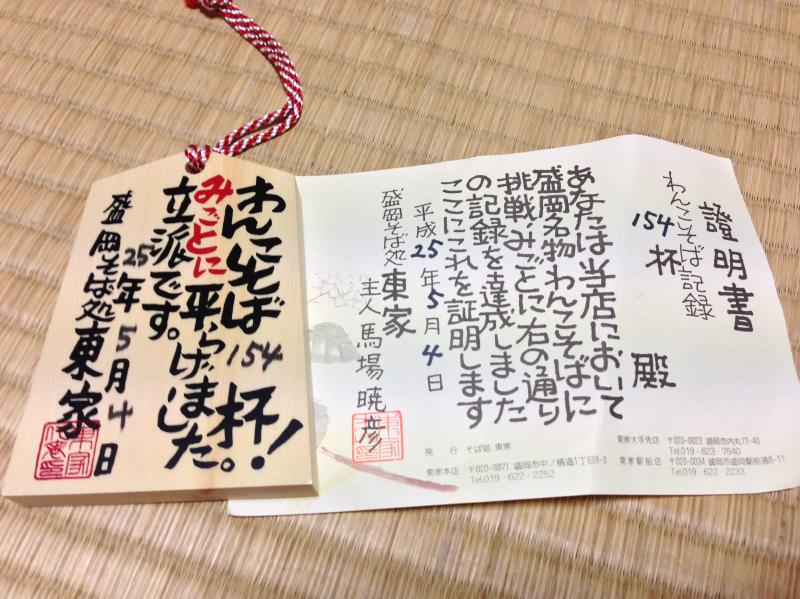 わんこそば154杯!
みごとに平らげました。
立派です。
25年5月4日
盛岡そば処東家
證明書
わんこそば記録
154杯
殿
あなたは当店において
盛岡名物わんこそばに
挑戦、みごとに右の通り
の記録を達成しました
ここにこれを証明します
平成25年5月4日
盛岡そば処東家
主人馬場暁彦
発行 そば処 東家
東家本店 〒020-0871 盛岡市中ノ橋通1丁目8-3
Tel.019・622・2252
東家大手先店 〒020-0023 盛岡市内丸17-40
Tel.019・623・7540
東家駅前店 〒020-0034 盛岡市盛岡駅前通8-11
Tel.019・622・2233